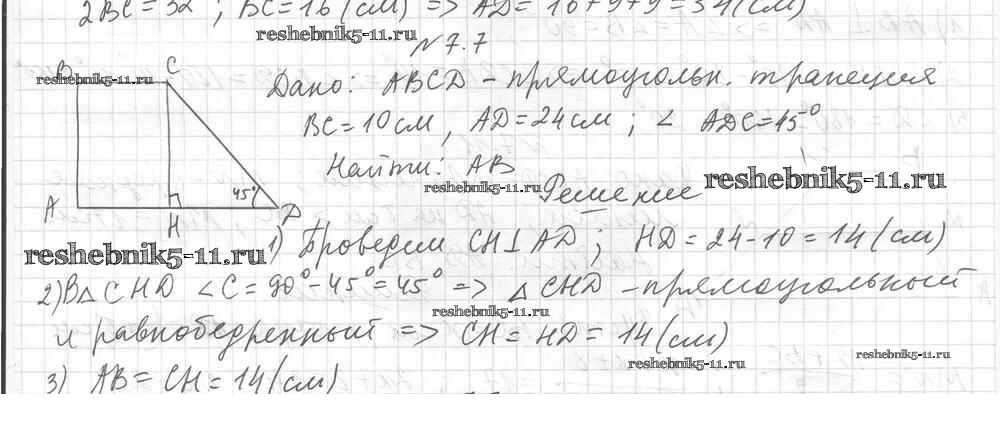 2BC = 32 ; BC = 16 (см) => AD = 16+9+9 = 34 (см)
reshebnik5-11.ru
№ 7.7
reshebnik5-11.ru
B C
Дано: ABCD – прямоугольн. трапеция
BC = 10 см, AD = 24 см ; ∠ ADC = 45°
Найти: AB
reshebnik5-11.ru
Решение
reshebnik5-11.ru
45°
A H D
reshebnik5-11.ru
1) Проведем CH⊥AD ; HD = 24-10 = 14 (см)
2) В △ CHD ∠C = 90° - 45° = 45° => △ CHD – прямоугольный
reshebnik5-11.ru
и равнобедренный => CH = HD = 14 (см)
reshebnik5-11.ru
reshebnik5-11.ru
3) AB = CH = 14 (см)